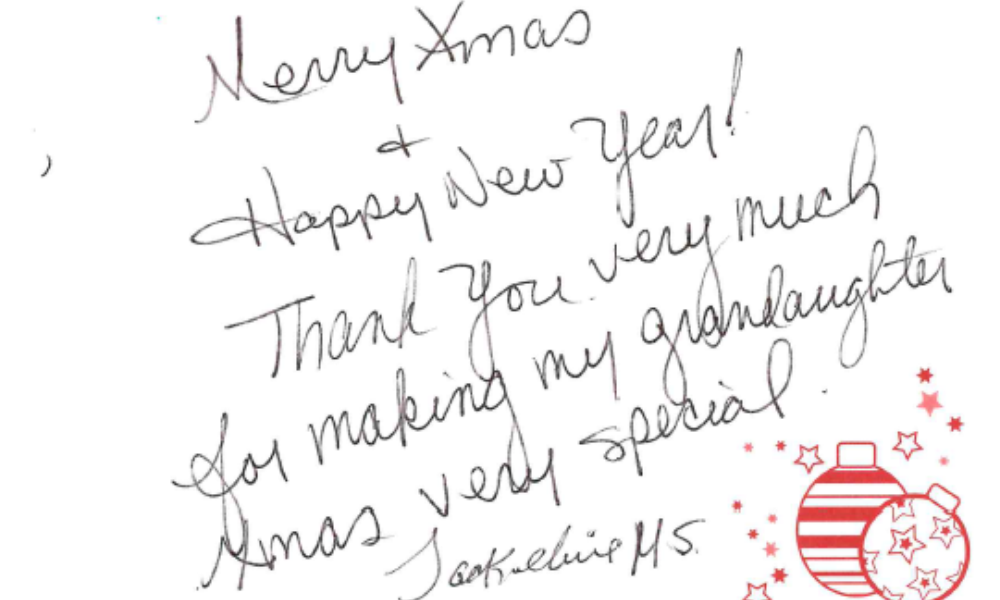 Merry Xmas
+
Happy New Year!
Thank You very much
for making my grandaughter
Xmas very special.
Jackeline M S.